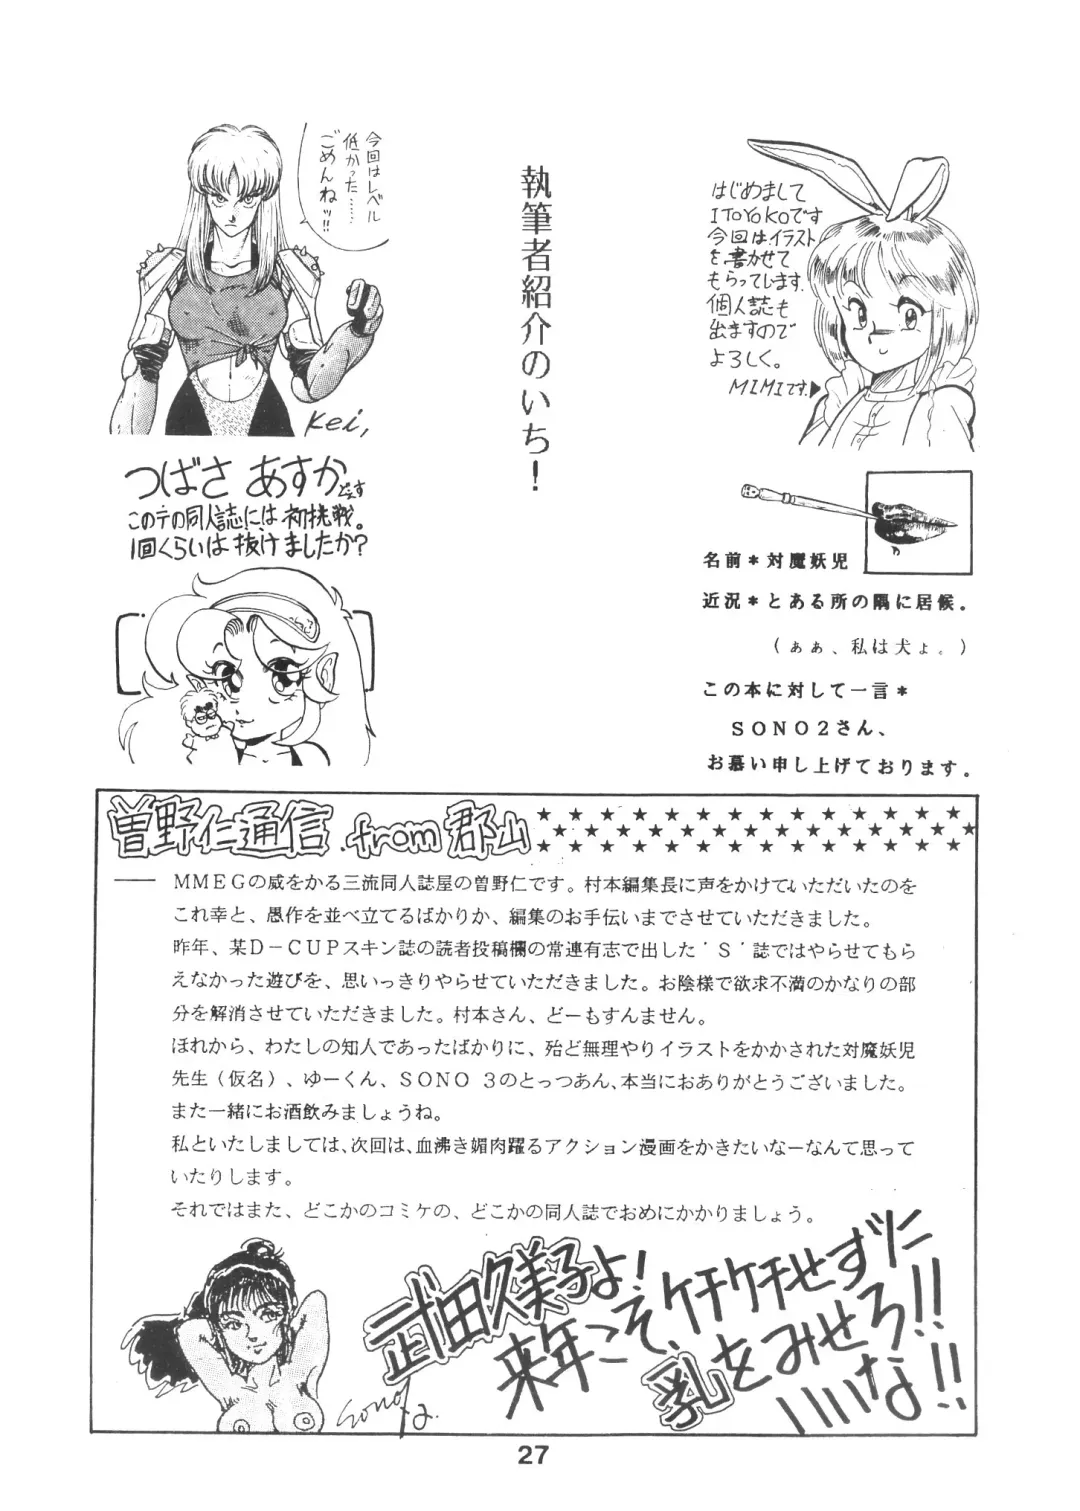 執筆者紹介のいち！
はじめまして
ITOYOKOです
今回はイラスト
を書かせて
もらってします.
個人誌も
出ますので
よろしく。
MIMIです.▶
今回はレベル
低かった……
ごめんねッ!!
Kei,
名前＊対魔妖児
近況＊とある所の隅に居候。
（ぁぁ、私は犬ょ。）
この本に対して一言＊
ＳＯＮＯ２さん、
お慕い申し上げております。
つばさ あすかどぇす
このテの同人誌には初挑戦。
1回くらいは抜けましたか？
曽野仁通信.from郡山
―― ＭＭＥＧの威をかる三流同人誌屋の曽野仁です。村本編集長に声をかけていただいたのを
これ幸と、愚作を並べ立てるばかりか、編集のお手伝いまでさせていただきました。
昨年、某Ｄ－ＣＵＰスキン誌の読者投稿欄の常連有志で出した＇Ｓ＇誌ではやらせてもら
えなかった遊びを、思いっきりやらせていただきました。お陰様で欲求不満のかなりの部
分を解消させていただきました。村本さん、どーもすんません。
ほれから、わたしの知人であったばかりに、殆ど無理やりイラストをかかされた対魔妖児
先生（仮名）、ゆーくん、ＳＯＮＯ ３のとっつあん、本当におありがとうございました。
また一緒にお酒飲みましょうね。
私といたしましては、次回は、血沸き媚肉躍るアクション漫画をかきたいなーなんて思って
いたりします。
それではまた、どこかのコミケの、どこかの同人誌でおめにかかりましょう。
武田久美子よ！
来年こそ、ケチケチせずに
乳をみせろ!!
いいな!!
Sono 2.
27